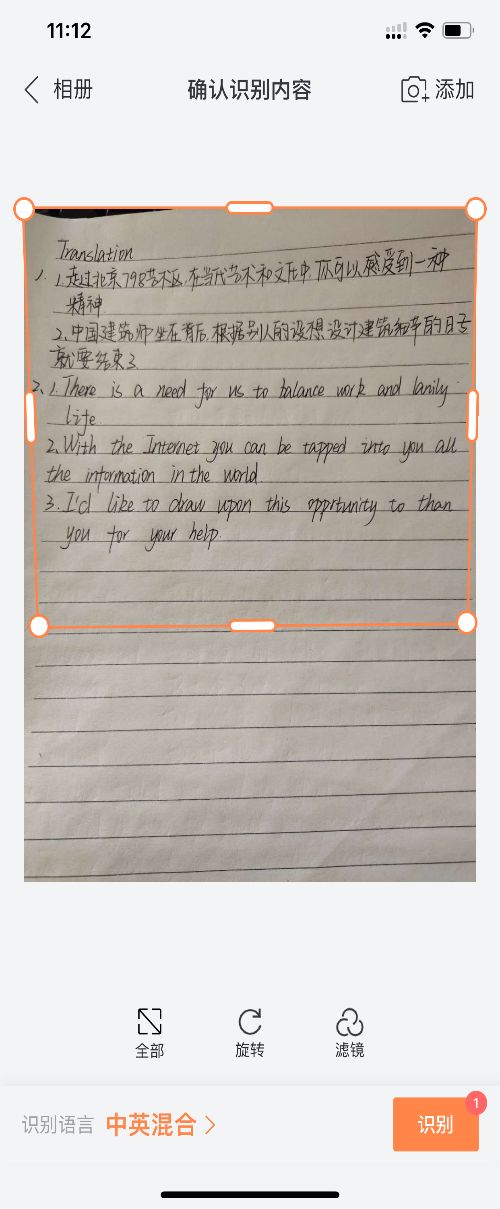 11:12
相册
确认识别内容
添加
Translation
1. 1.走过北京798艺术区,在当代艺术和文化中,你可以感受到一种
精神.
2、中国建筑师坐在背后,根据别人的设想设计建筑细节的日子
就要结束了
2、1. There is a need for us to balance work and lanily
life.
2、With the Internet you can be tapped into you all
the information in the world.
3. I'd like to draw upon this opprtunity to than
you for your help.
全部
旋转
滤镜
识别语言 中英混合
识别
1